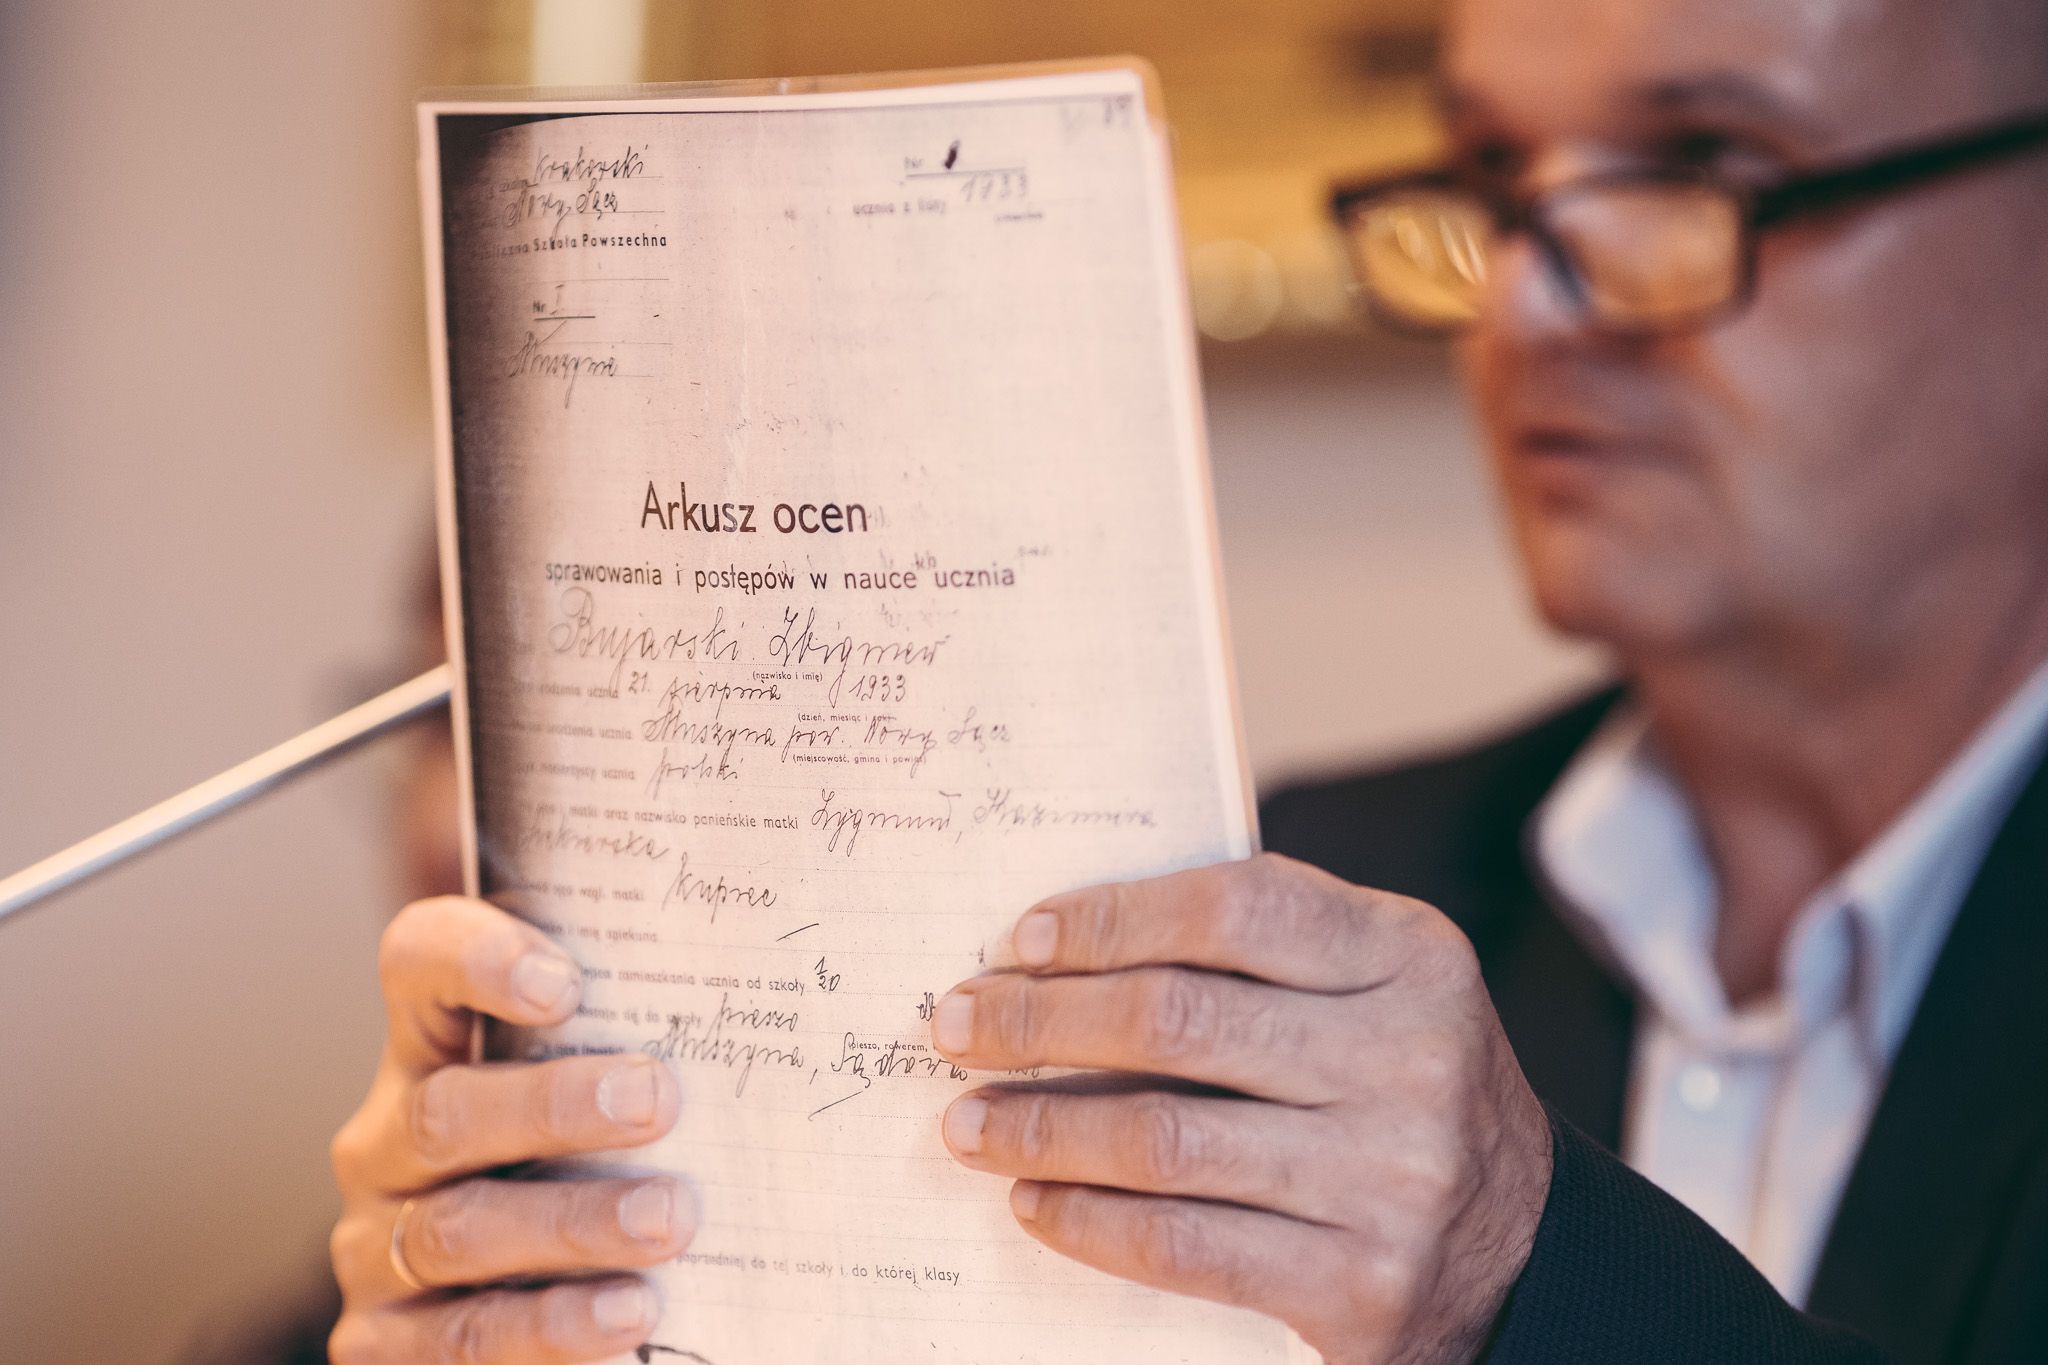 Krakowski
Nowy Sącz
Publiczna Szkoła Powszechna
Nr I
Muszynie
Nr
ucznia z listy 1933
Arkusz ocen
sprawowania i postępów w nauce ucznia
Bujarski Zbigniew
(nazwisko i imię)
urodzenia ucznia 21. sierpnia 1933
(dzień, miesiąc i rok)
urodzenia ucznia Muszyna pow. Nowy Sącz
(miejscowość, gmina i powiat)
macierzysty ucznia polski
matki oraz nazwisko panieńskie matki Zygmunt, Kazimiera
wzgl. matki kupiec
i imię opiekuna
zamieszkania ucznia od szkoły 1/20
się do szkoły pieszo
(pieszo, rowerem,
Muszyna,
poprzedniej do tej szkoły i do której klasy